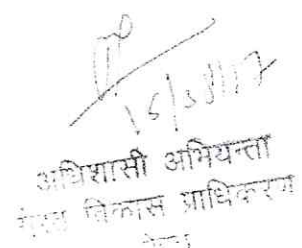 16/08/17
अधिशासी अभियन्ता
मेरठ विकास प्राधिकरण
मेरठ